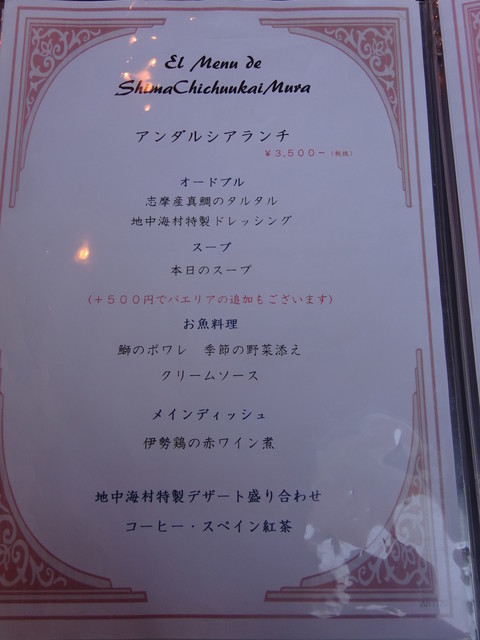 El Menu de
ShimaChichuukaiMura
アンダルシアランチ
￥3,500－（税抜）
オードブル
志摩産真鯛のタルタル
地中海村特製ドレッシング
スープ
本日のスープ
（＋５００円でパエリアの追加もございます）
お魚料理
鰤のポワレ　季節の野菜添え
クリームソース
メインディッシュ
伊勢鶏の赤ワイン煮
地中海村特製デザート盛り合わせ
コーヒー・スペイン紅茶